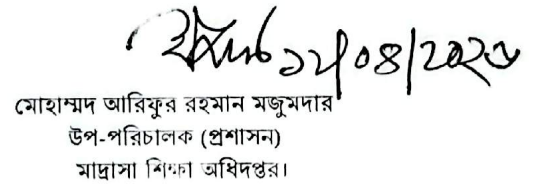 মোহাম্মদ আরিফুর রহমান মজুমদার
উপ-পরিচালক (প্রশাসন)
মাদ্রাসা শিক্ষা অধিদপ্তর।